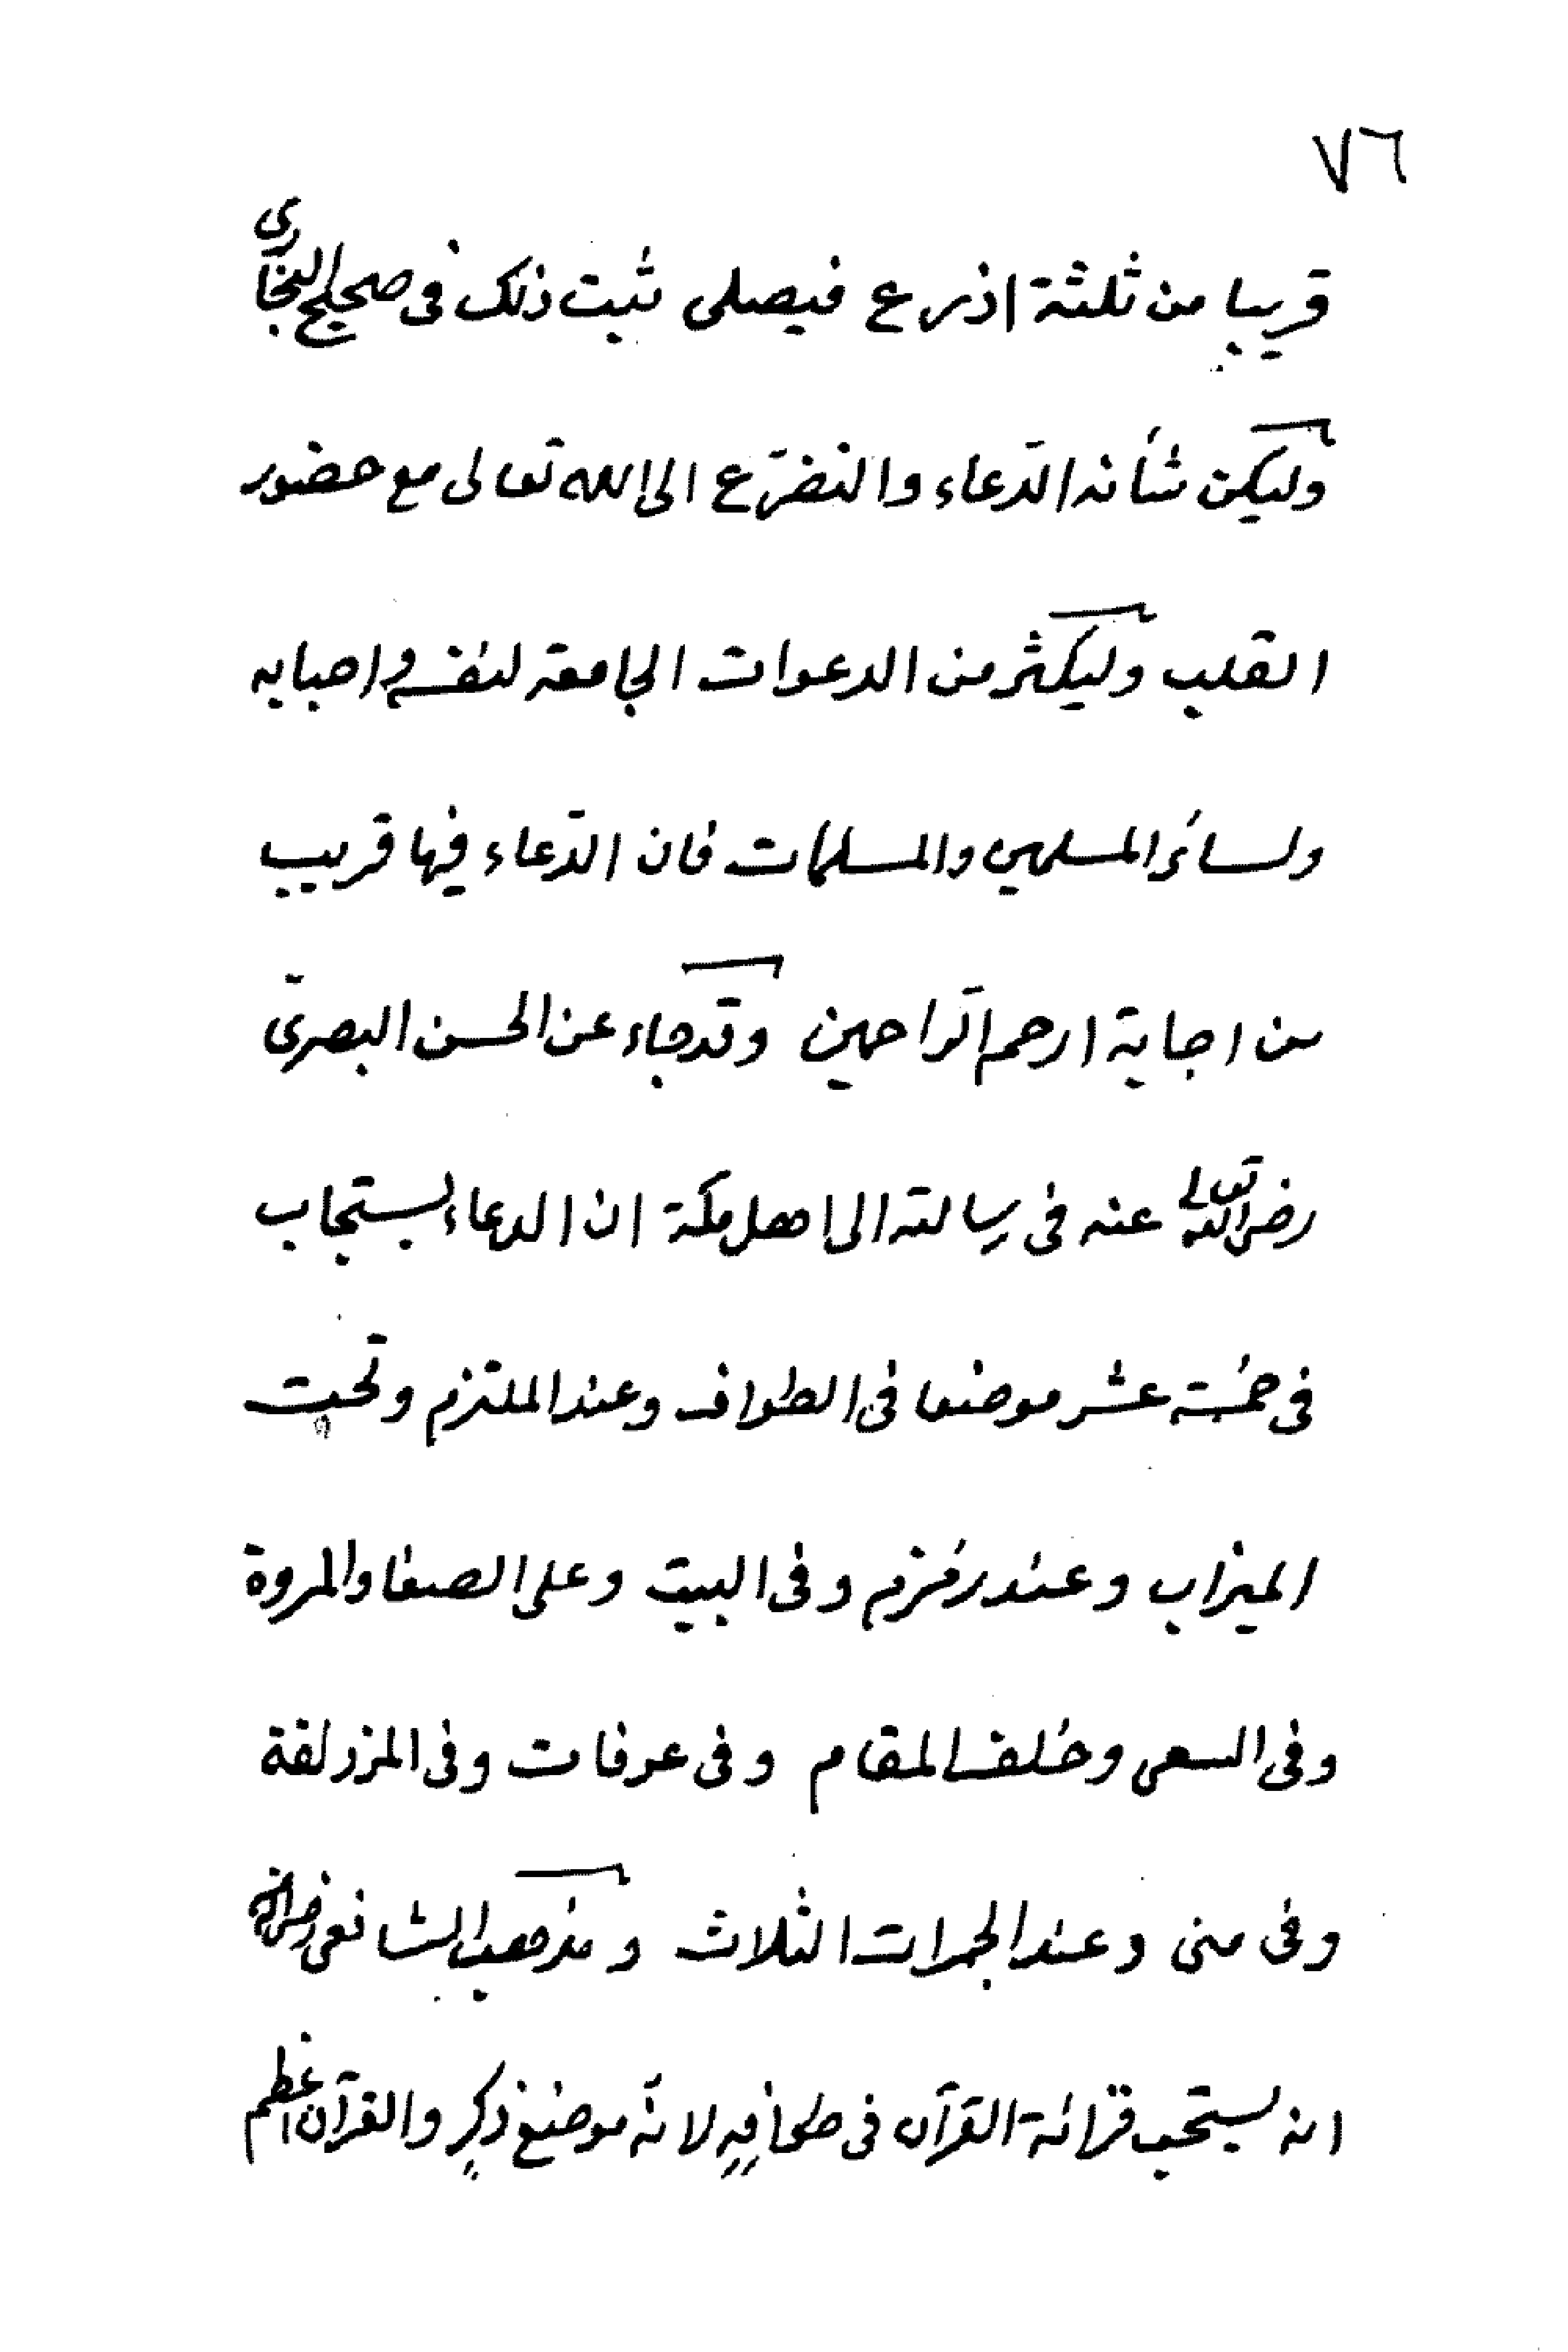 ٧٦
قريبا من ثلثة اذرع فيصلى ثبت ذلك فى صحيح البخارى
وليكن شأنه الدّعاء والتضرّع الى الله تعالى مع حضور
القلب وليكثر من الدعوات الجامعة لنفسه واحبابه
ولسائر المسلمين والمسلمات فان الدّعاء فيها قريب
من اجابة ارحم الرّاحمين وقد جاء عن الحسن البصرىّ
رضى الله تعالى عنه فى رسالته الى اهل مكة ان الدعاء يستجاب
فى خمسة عشر موضعا فى الطواف وعند الملتزم وتحت
الميزاب وعند زمزم وفى البيت وعلى الصفا والمروة
وفى السعى وخلف المقام وفى عرفات وفى المزدلفة
وفى منى وعند الجمرات الثلاث ومذهب الشافعى رضى الله عنه
انه يستحب قرائة القرآن فى طوافِهِ لانّه موضع ذكرٍ والقرآن اعظم